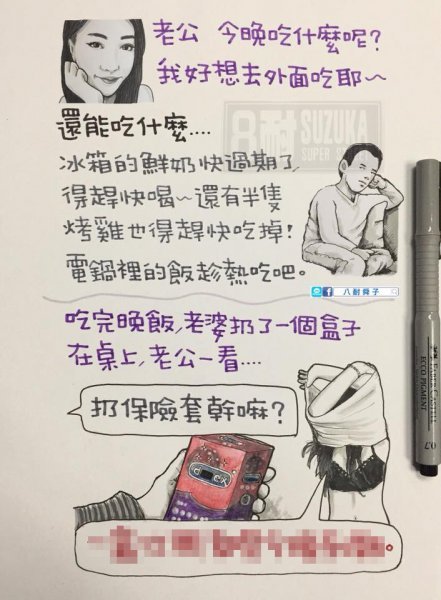 老公 今晚吃什麼呢?
我好想去外面吃耶~
8耐 SUZUKA
還能吃什麼....
冰箱的鮮奶快過期了,
得趕快喝~還有半隻
烤雞也得趕快吃掉!
電鍋裡的飯趁熱吃吧。
八耐舜子
吃完晚飯,老婆扔了一個盒子
在桌上,老公一看....
扔保險套幹嘛?
ECCO PIGMENT
0.7